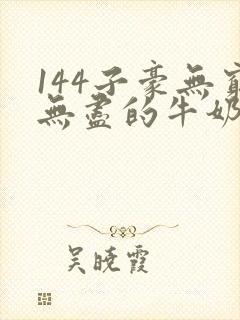 144子豪無窮
無盡的牛奶
吳曉霞